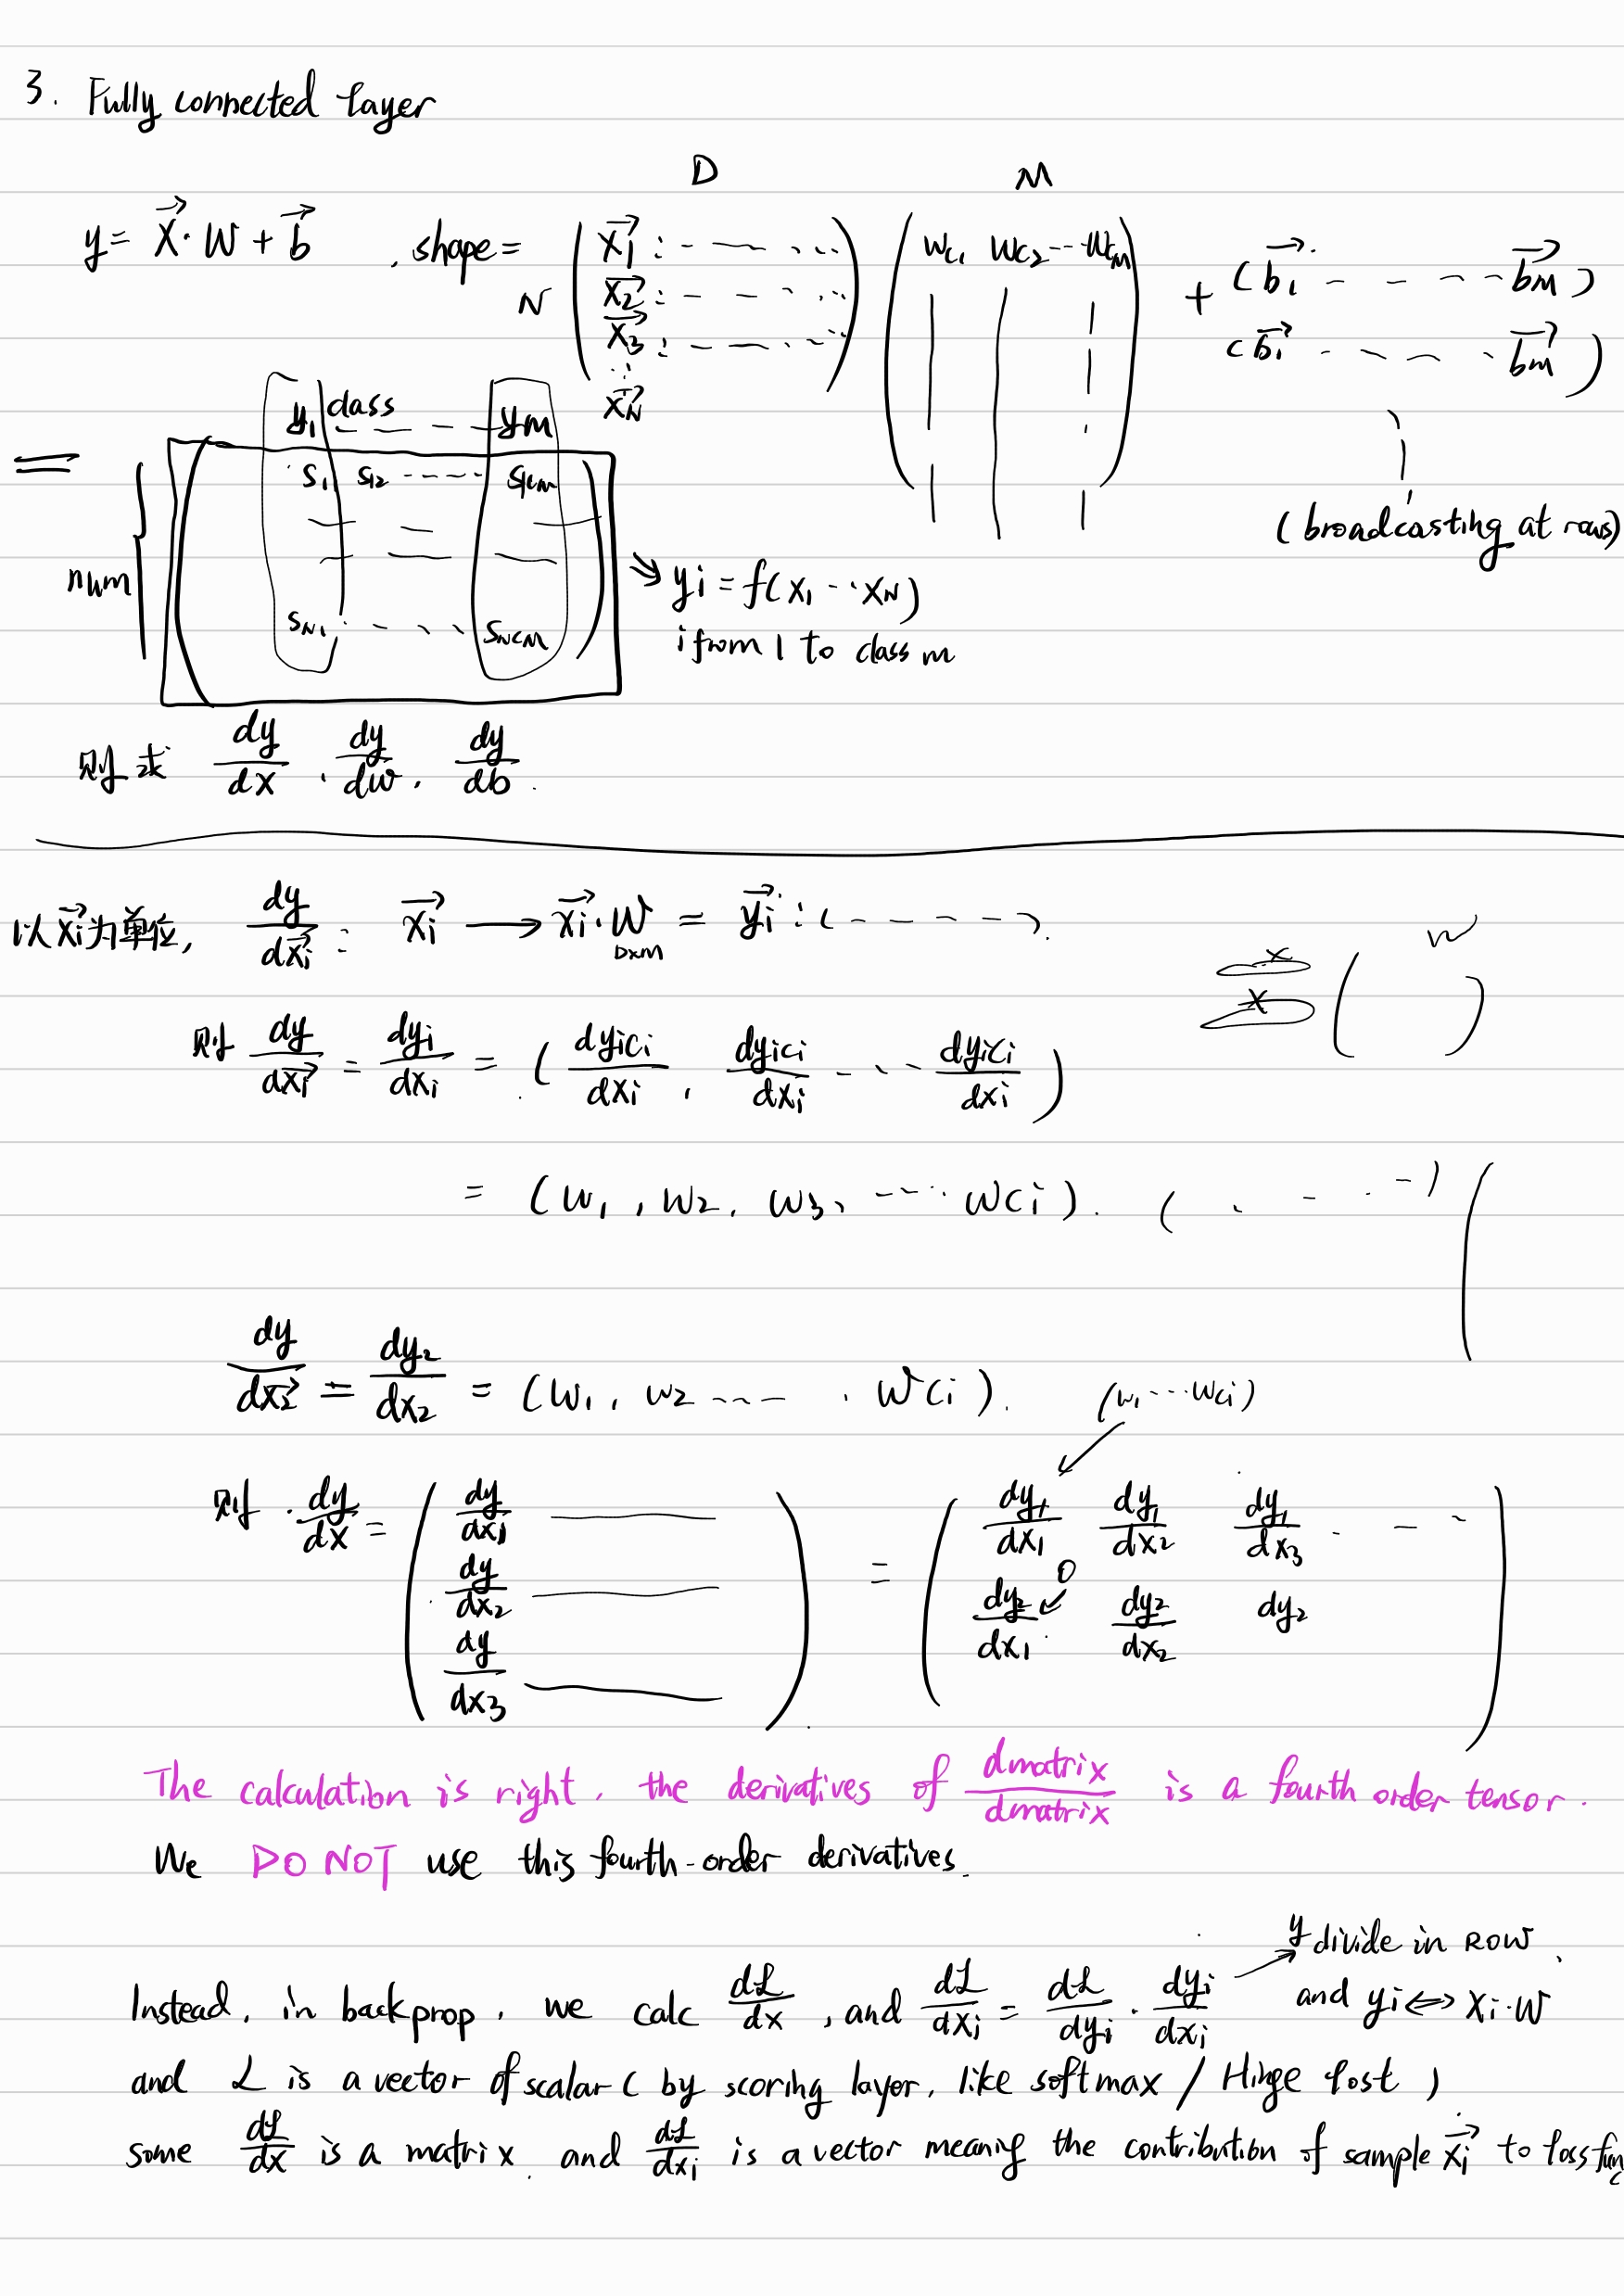 3. Fully connected layer
D M
y = X⃗ · W + b⃗ , shape = N ( x⃗1 : - - - - ... x⃗2 : - - - ... x⃗3 : - - - ... ⋮ x⃗N ) ( Wc1 Wc2 --- Wcm ) + ( b⃗1 - - - - b⃗m )
( b⃗1 - - - - b⃗m )
(broadcasting at rows)
y1 class - - - - ym
= num { ( S1 S12 ---- S1cm
SN1 · - - · SNcm )
⇒ yi = f(x1 ··· xN)
i from 1 to class m
则求 dy/dx , dy/dw , dy/db .
以 x⃗i 为单位, dy/dx⃗i : x⃗i → x⃗i · W = y⃗i : ( - - - - - ) .
D×M
x w
x ( )
则 dy/dx⃗i = dyi/dxi = ( dyici/dxi , dyici/dxi - - - dyici/dxi )
= ( w1 , w2 , w3 , ---- wci ) . ( · - · - ) (
dy/dx⃗2 = dy2/dx2 = ( w1 , w2 ---- . wci ) . (w1 ··· wci)
则 · dy/dx = ( dy/dx1 —— dy/dx2 —— dy/dx3 —— ) = ( dy1/dx1 dy1/dx2 dy1/dx3 · - -
0
dy2/dx1 dy2/dx2 dy2 )
The calculation is right. the derivatives of dmatrix/dmatrix is a fourth order tensor.
We DO NOT use this fourth-order derivatives.
y divide in ROW.
Instead, in backprop, we calc dL/dx , and dL/dxi = dL/dyi · dyi/dxi → and yi ⟺ xi·W
and L is a vector of scalar ( by scoring layer, like softmax / Hinge lost )
some dL/dx is a matrix. and dL/dxi is a vector meanig the contribution of sample x⃗i to loss func